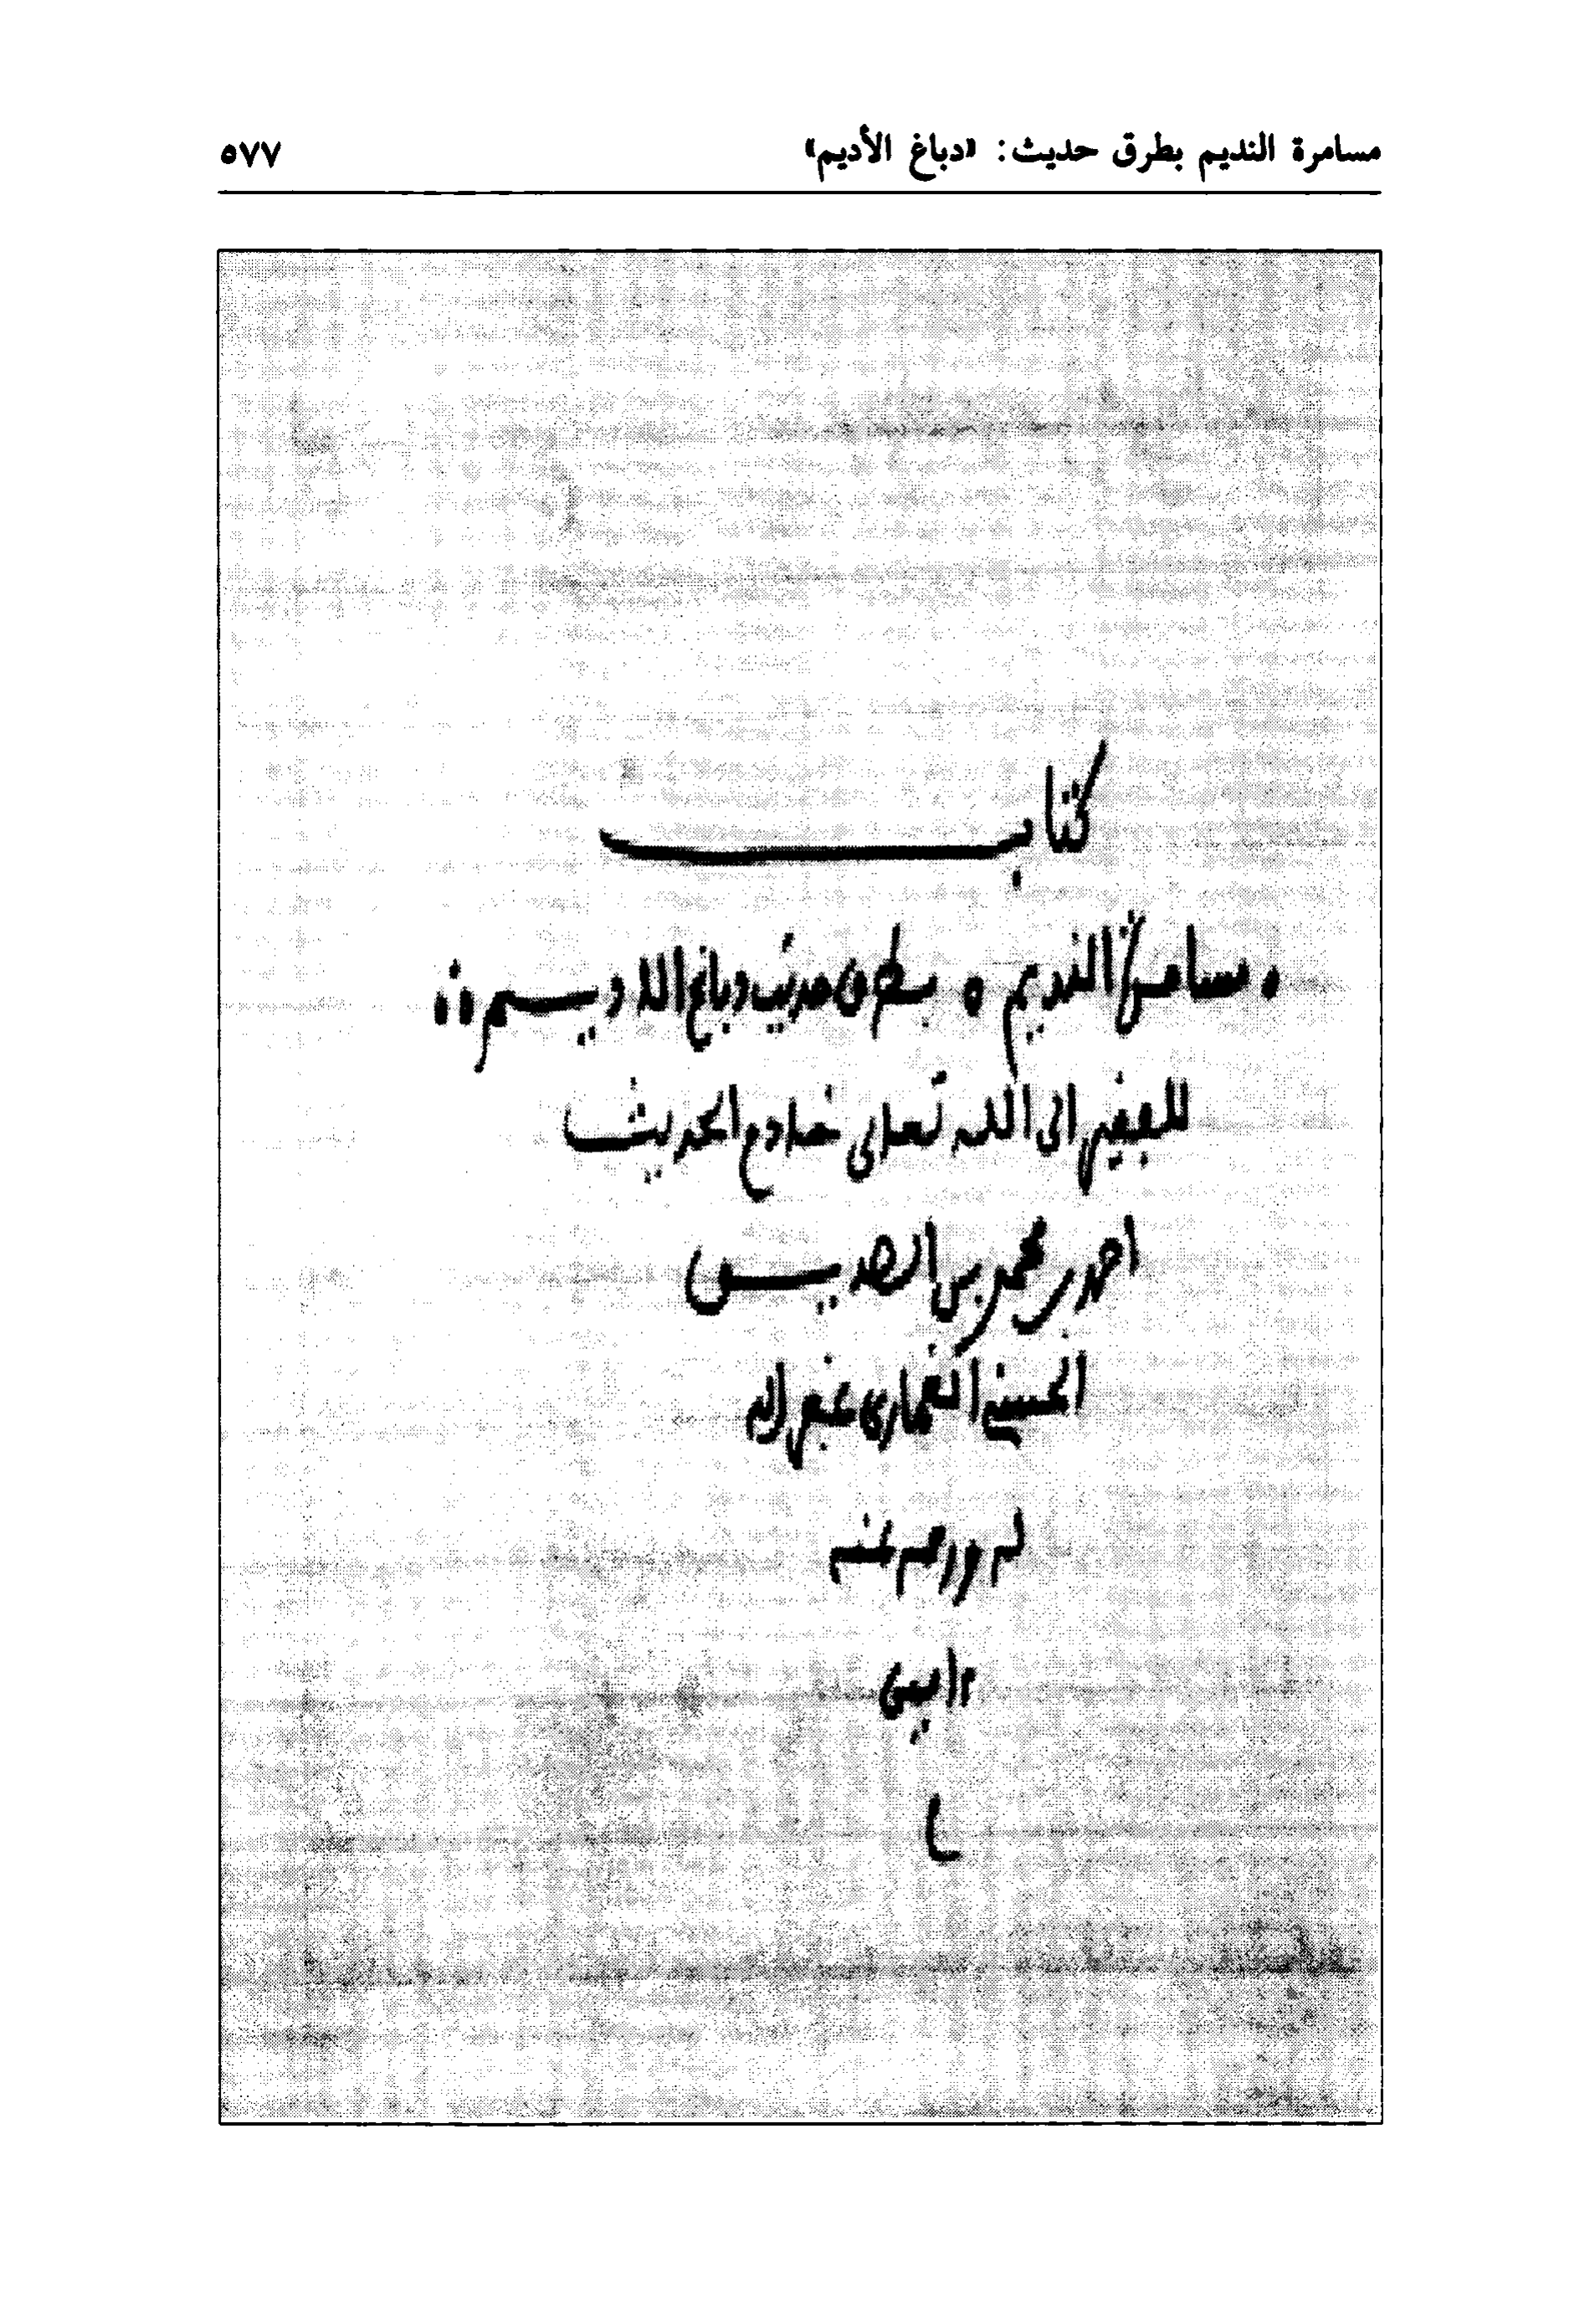 مسامرة النديم بطرق حديث: «دباغ الأديم»
٥٧٧
كتاب
مسامرة النديم بطرق حديث دباغ الاديم
للفقير الى الله تعلى خادم الحديث
احمد بن محمد بن الصديق
الحسني الغمارى غفر الله
له ورحمه بمنه
ءامين